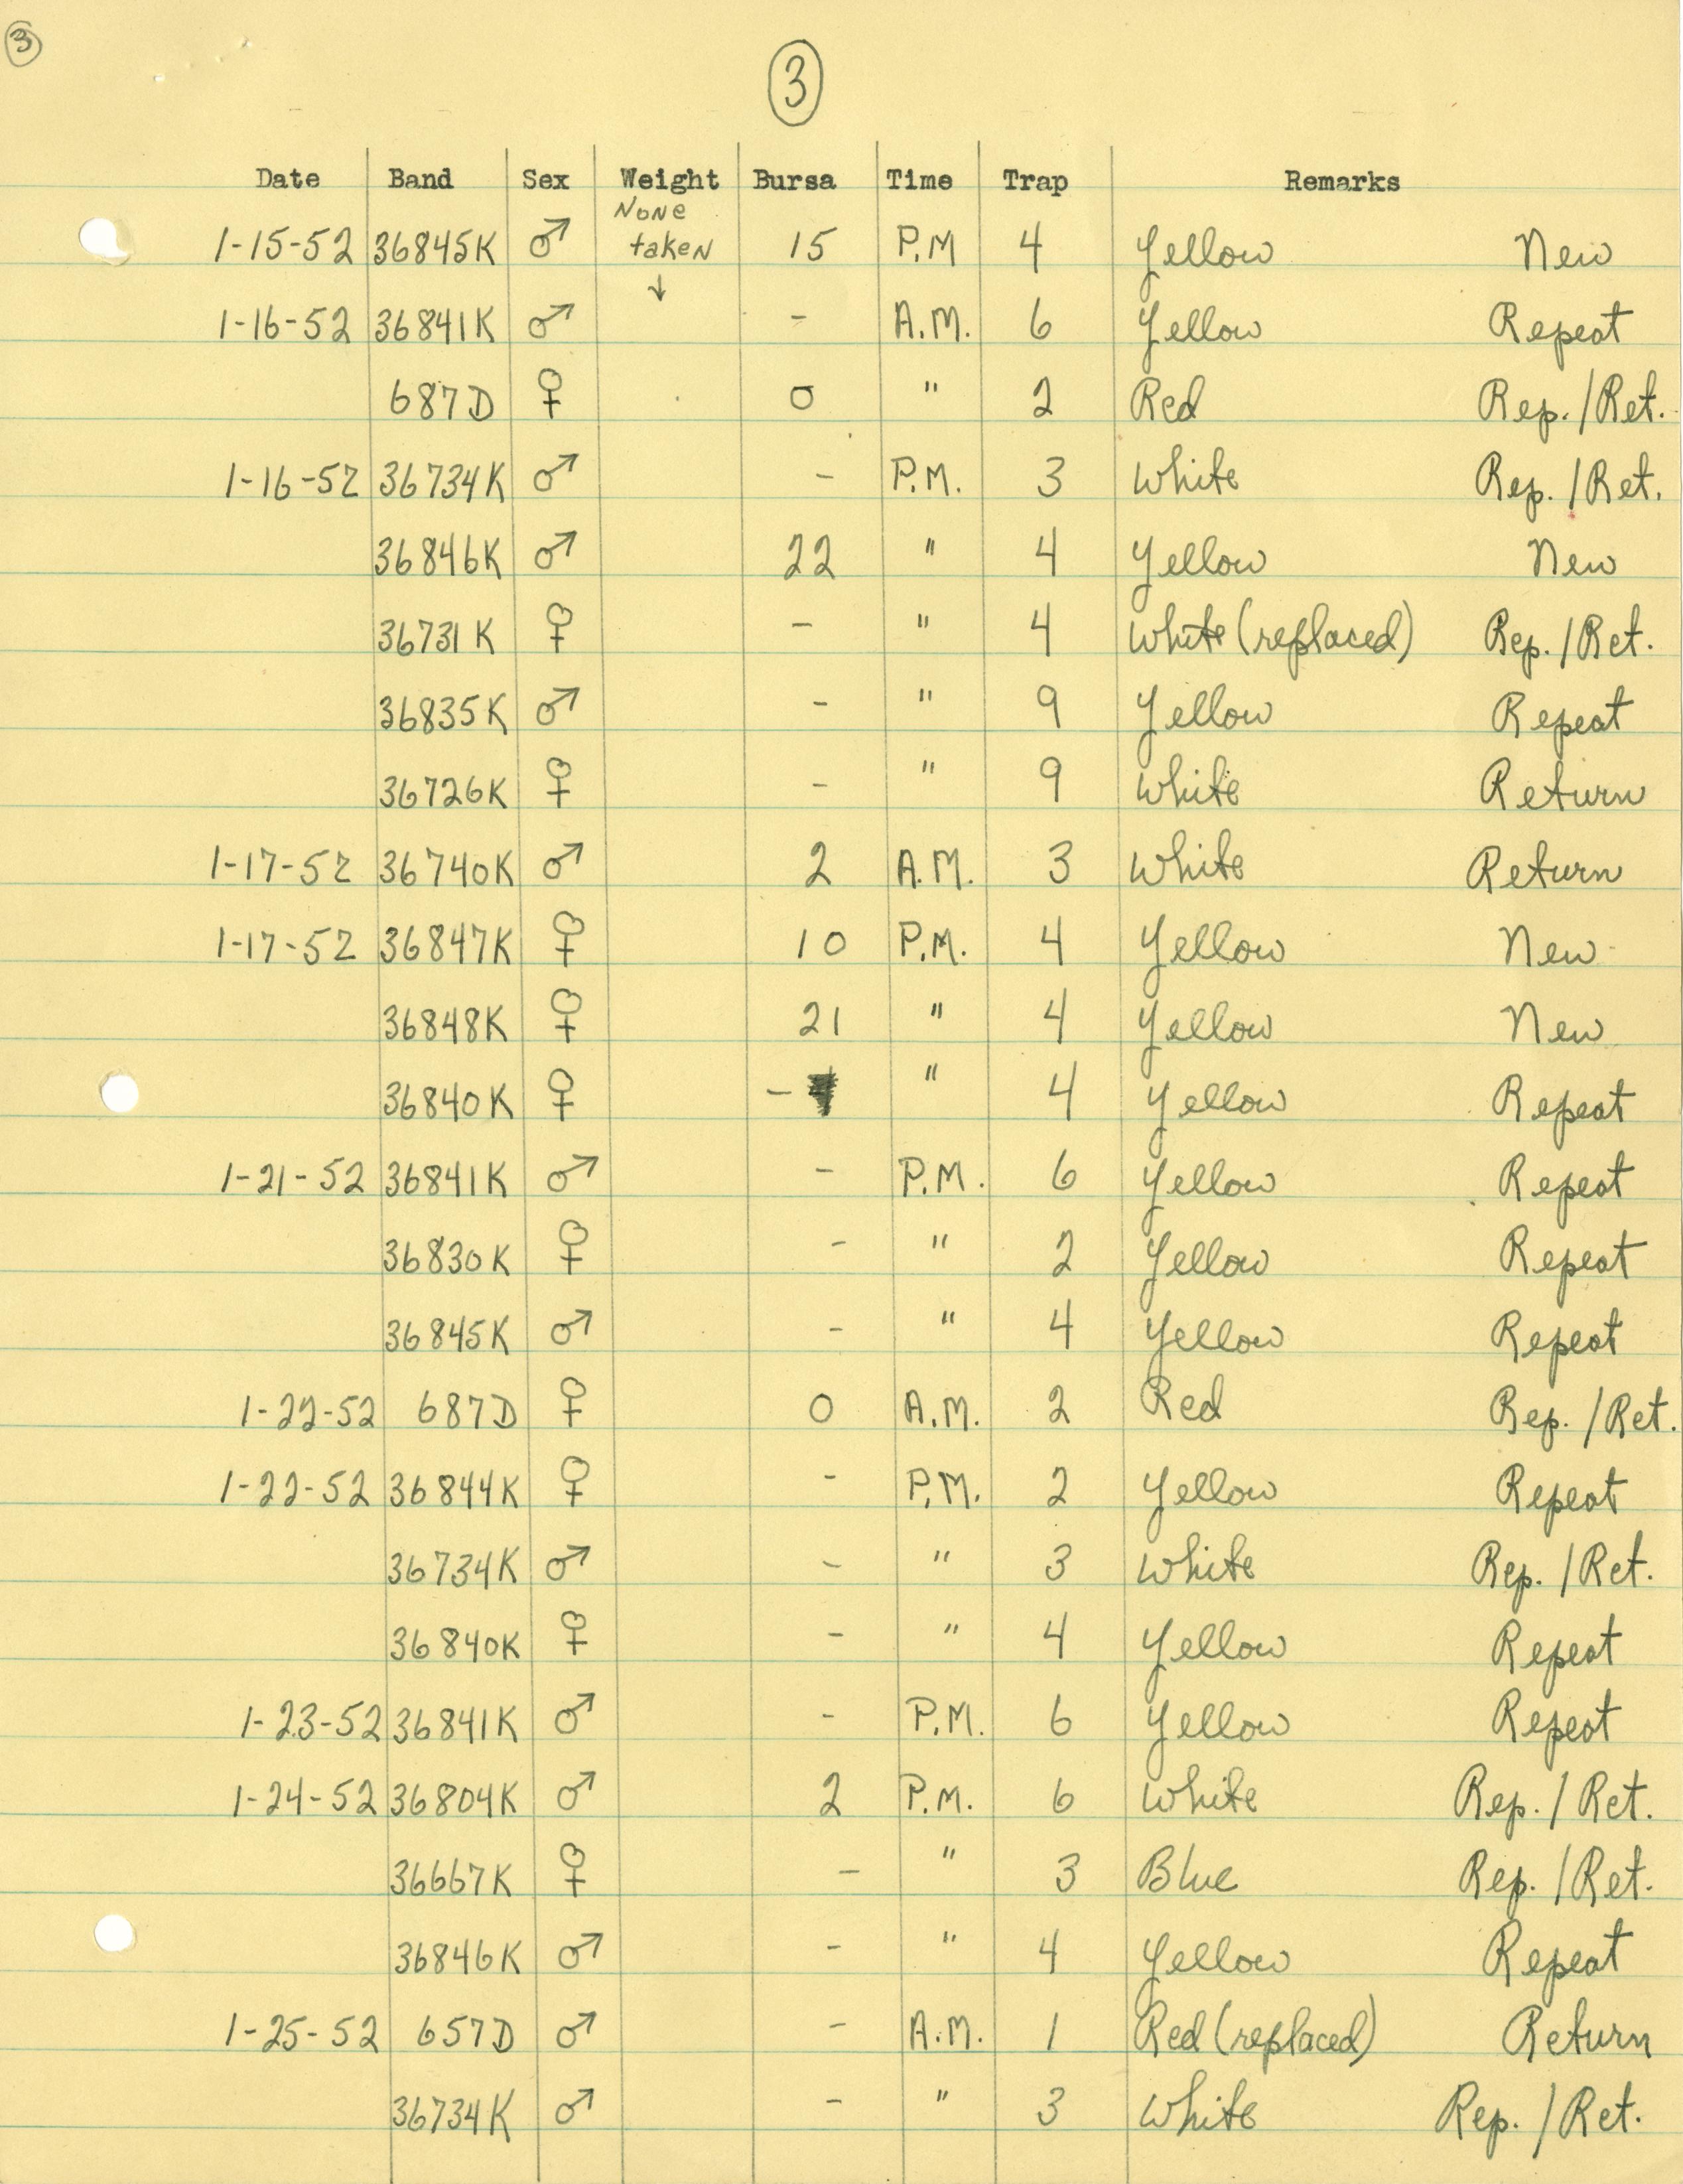 3
3
Date Band Sex Weight Bursa Time Trap Remarks
None
1-15-52 36845K ♂ taken 15 P.M 4 Yellow New
↓
1-16-52 36841K ♂ - A.M. 6 Yellow Repeat
687D ♀ 0 " 2 Red Rep./Ret.
1-16-52 36734K ♂ - P.M. 3 White Rep./Ret.
36846K ♂ 22 " 4 Yellow New
36731K ♀ - " 4 White (replaced) Rep./Ret.
36835K ♂ - " 9 Yellow Repeat
36726K ♀ - " 9 White Return
1-17-52 36740K ♂ 2 A.M. 3 White Return
1-17-52 36847K ♀ 10 P.M. 4 Yellow New
36848K ♀ 21 " 4 Yellow New
36840K ♀ - " 4 Yellow Repeat
1-21-52 36841K ♂ - P.M. 6 Yellow Repeat
36830K ♀ - " 2 Yellow Repeat
36845K ♂ - " 4 Yellow Repeat
1-22-52 687D ♀ 0 A.M. 2 Red Rep./Ret.
1-22-52 36844K ♀ - P.M. 2 Yellow Repeat
36734K ♂ - " 3 White Rep./Ret.
36840K ♀ - " 4 Yellow Repeat
1-23-52 36841K ♂ - P.M. 6 Yellow Repeat
1-24-52 36804K ♂ 2 P.M. 6 White Rep./Ret.
36667K ♀ - " 3 Blue Rep./Ret.
36846K ♂ - " 4 Yellow Repeat
1-25-52 657D ♂ - A.M. 1 Red (replaced) Return
36734K ♂ - " 3 White Rep./Ret.